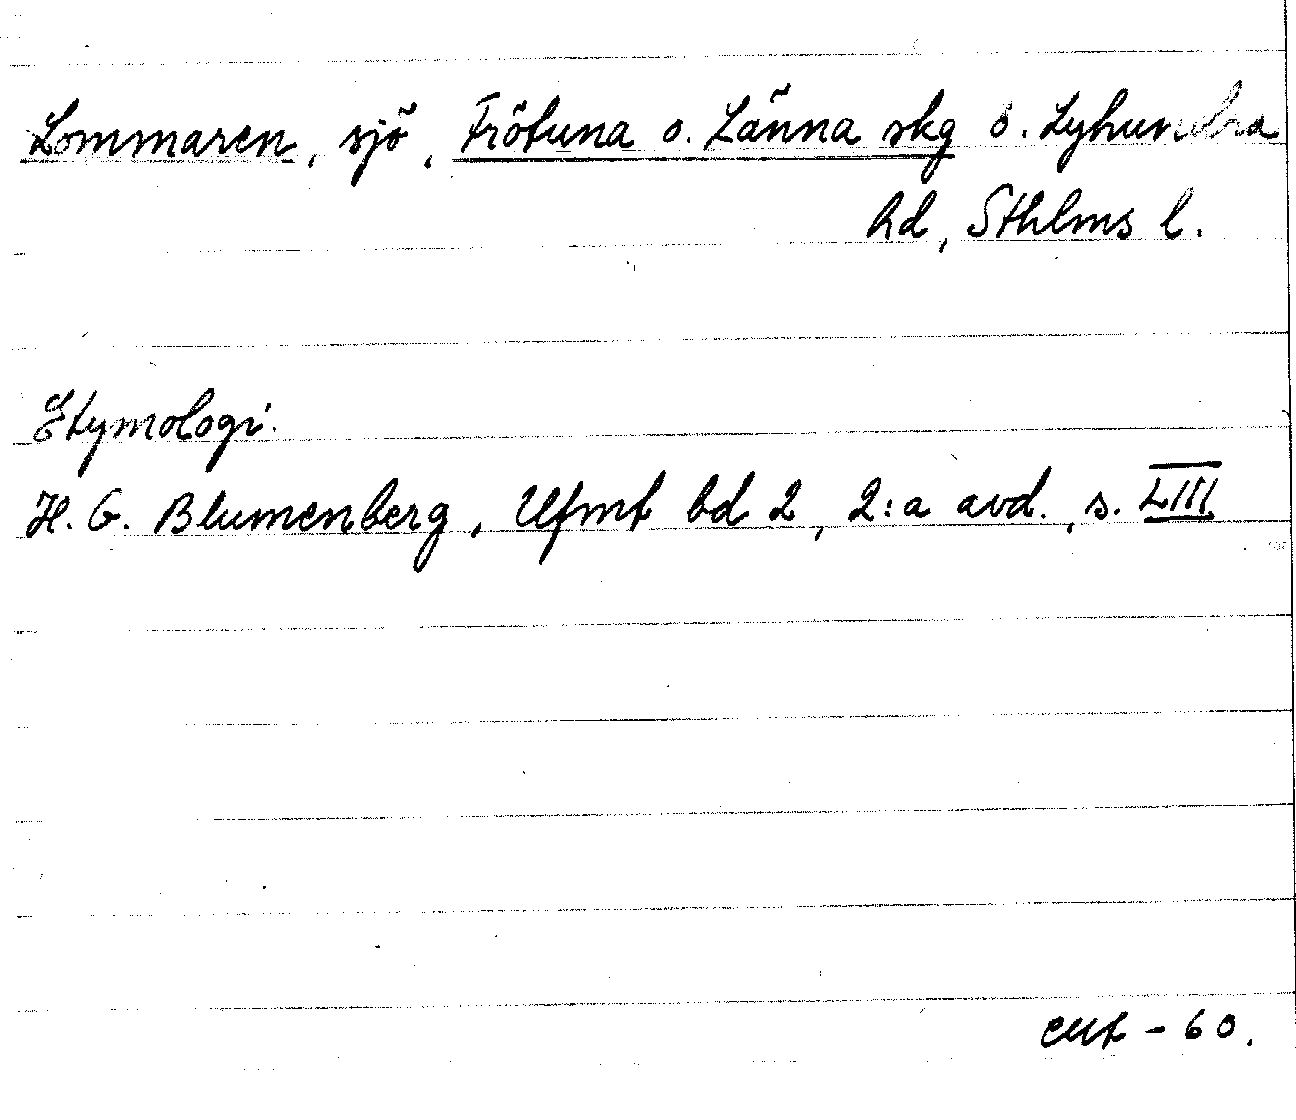 Lommaren, sjö, Frötuna o. Länna skg o. Lyhundra
hd, Sthlms l.
Etymologi.
H. G. Blumenberg, Ufmt bd 2, 2:a avd., s. LIII
-60.